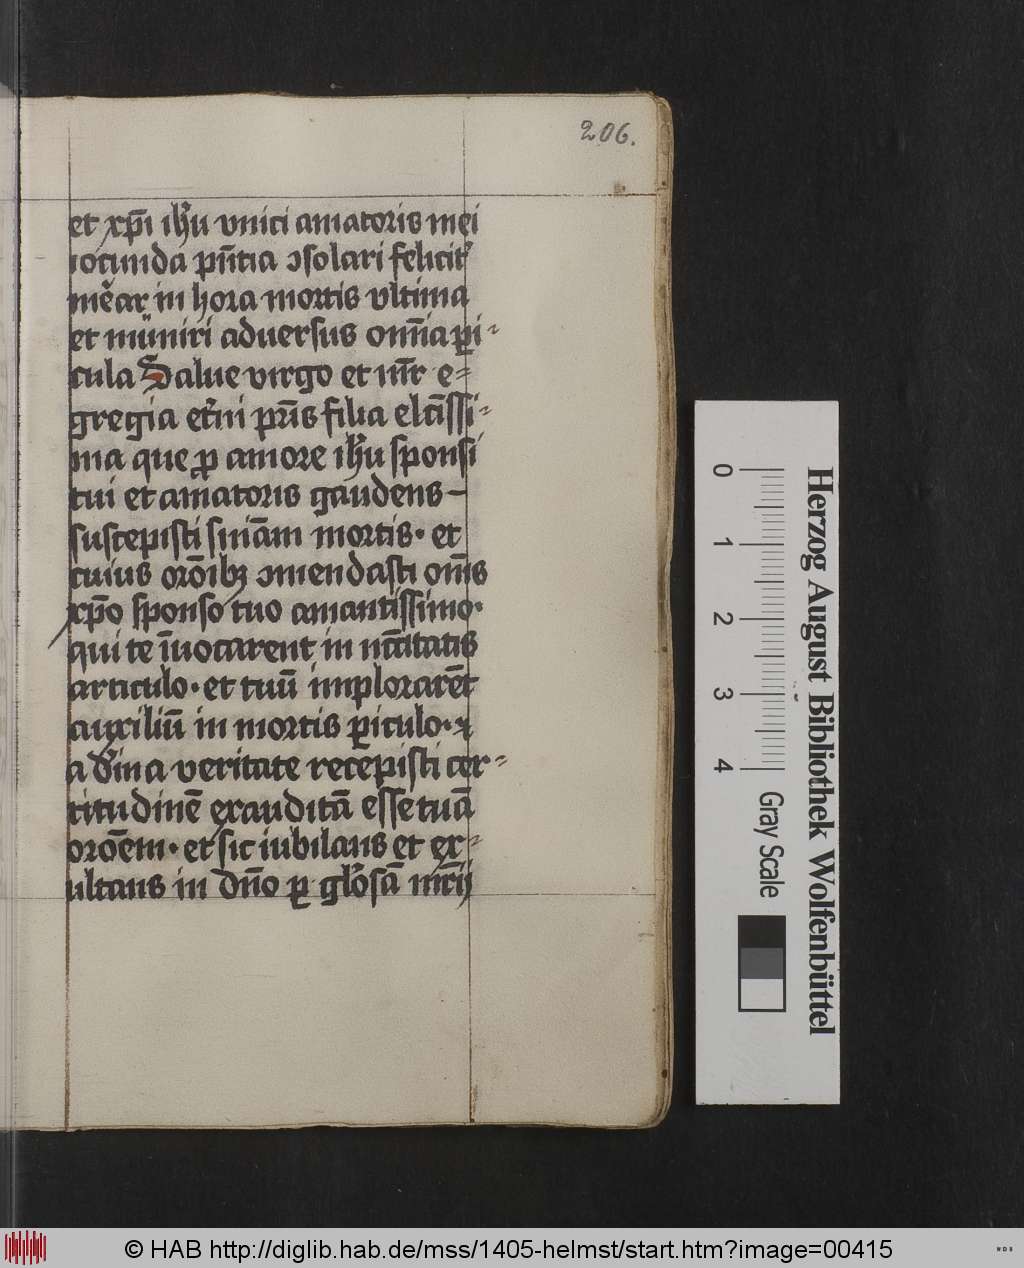 206.
et xp̄i ih̄u vnici amatoris mei
iocunda pn̄tia ɔsolari felicit᷑
me᷑ar in hora mortis vltima
et muniri aduersus om̄ia ꝑi-
cula Salue virgo et mr̄ e-
gregia et᷑ni pr̄is filia elc̄issi-
ma que ꝓ amore ih̄u sponsi
tui et amatoris gaudens-
suscepisti sn̄iam mortis· et
cuius or̄oibꝫ ɔmendasti om̄s
xp̄o sponso tuo amantissimo·
qui te īuocarent in nc̄citatis
articulo· et tuū implorarēt
auxiliū in mortis ꝑiculo· ⁊
a diuina veritate recepisti cer-
titudinē exauditā esse tuā
or̄oem· et sic iubilans et ex-
ultans in dn̄o ꝑ gl̄osā mr̄ij
0 1 2 3 4
Gray Scale
Herzog August Bibliothek Wolfenbüttel
© HAB http://diglib.hab.de/mss/1405-helmst/start.htm?image=00415